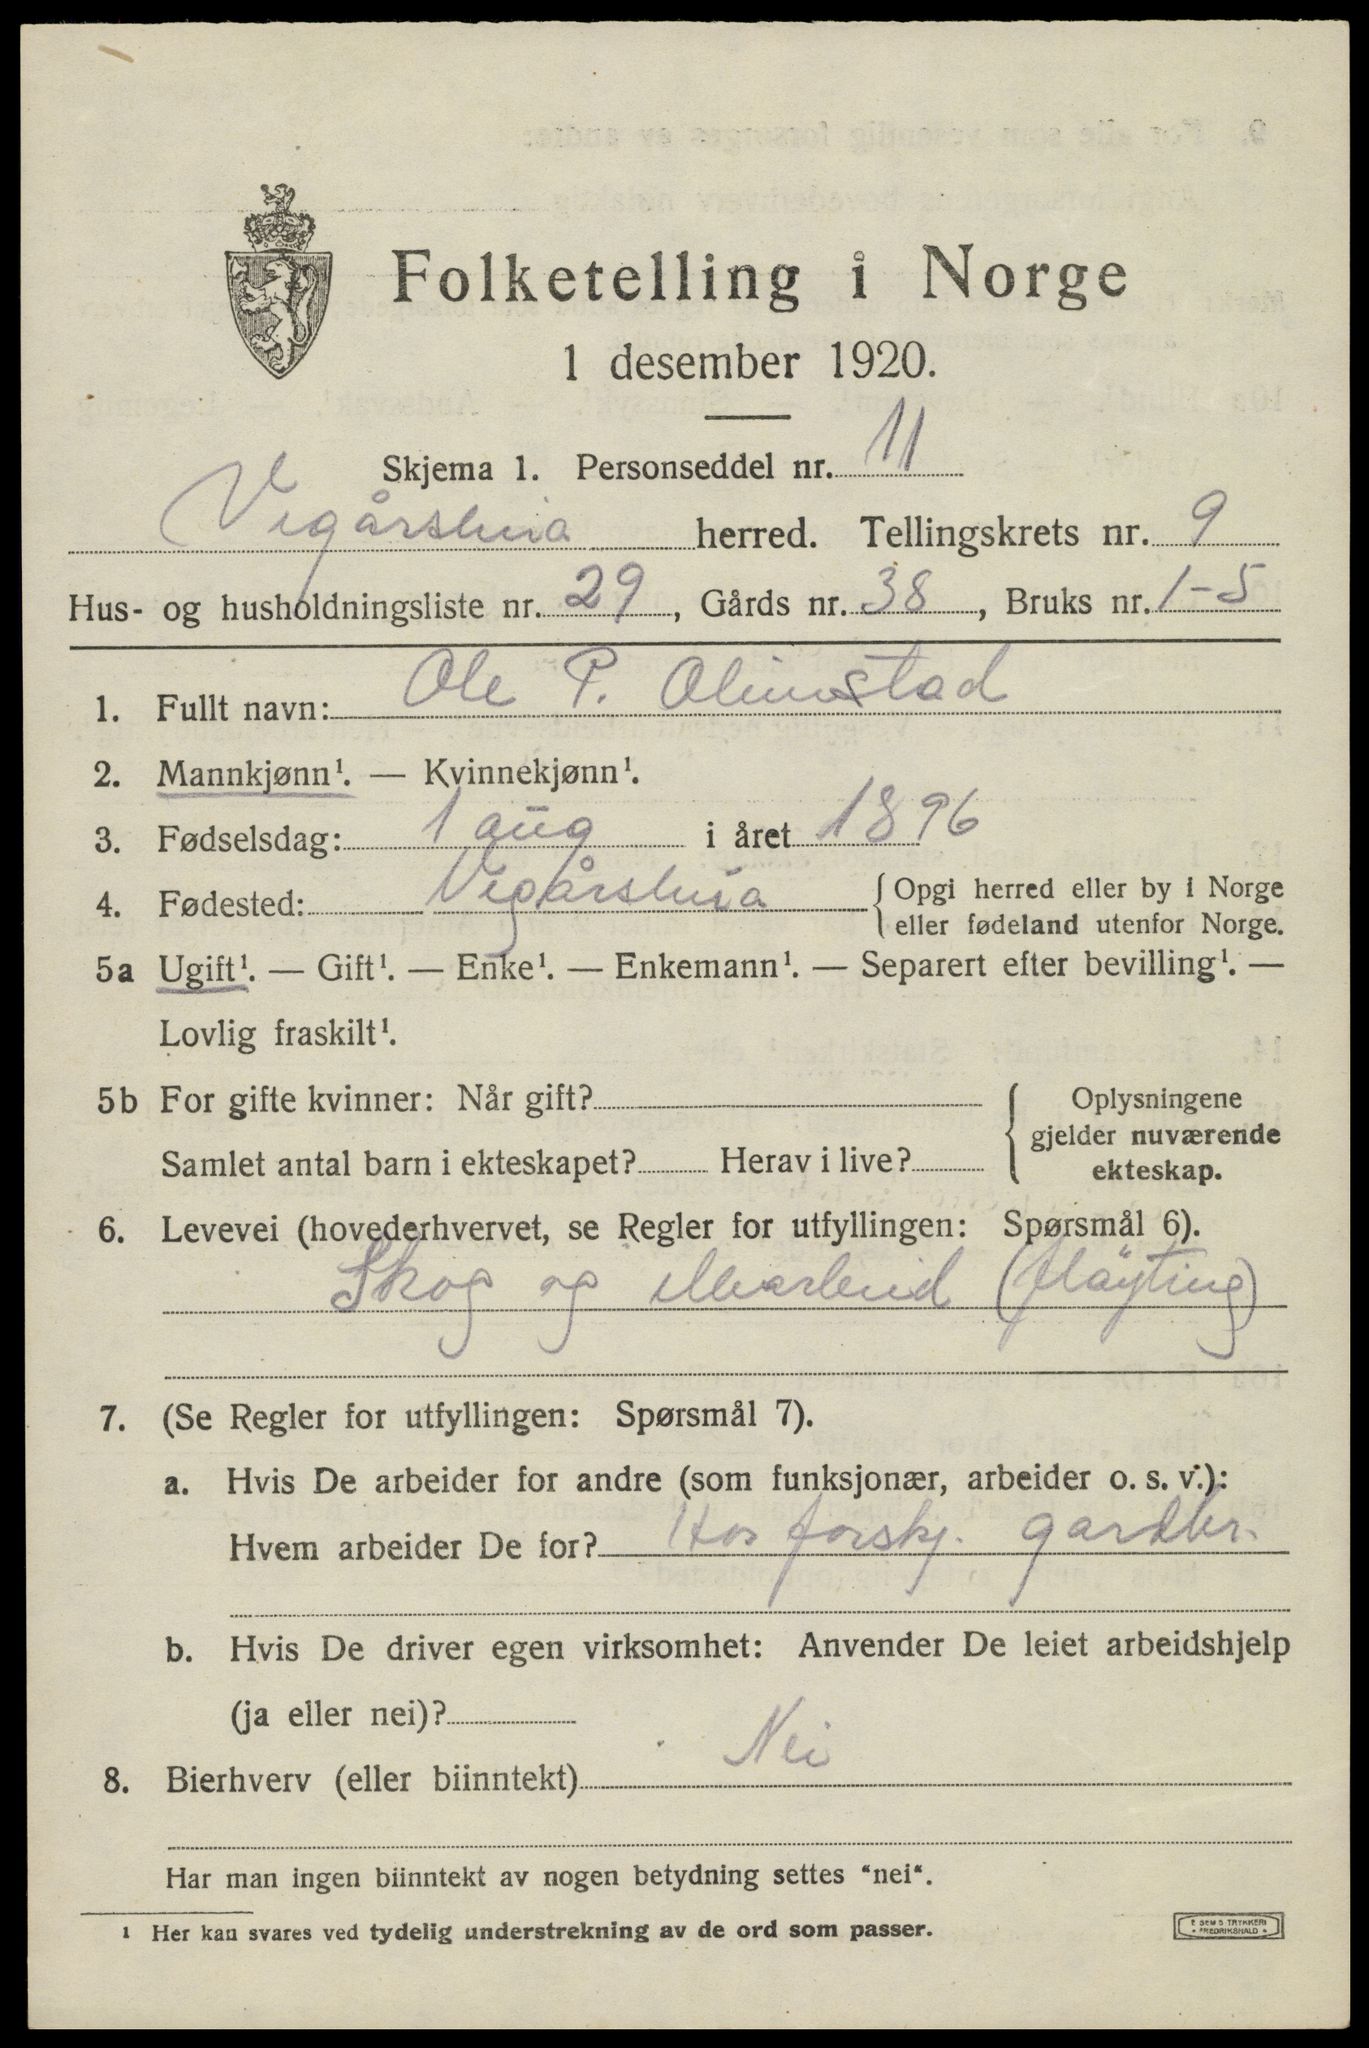 Folketelling i Norge
1 desember 1920.
Skjema 1. Personseddel nr. 11
Vegårshia herred. Tellingskrets nr. 9
Hus- og husholdningsliste nr. 29, Gårds nr. 38, Bruks nr. 1-5
1. Fullt navn: Ole P. Olimstad
2. Mannkjønn¹. — Kvinnekjønn¹.
3. Fødselsdag: 1 aug i året 1896
4. Fødested: Vegårshia {Opgi herred eller by i Norge
eller fødeland utenfor Norge.
5a Ugift¹. — Gift¹. — Enke¹. — Enkemann¹. — Separert efter bevilling¹. —
Lovlig fraskilt¹.
5b For gifte kvinner: Når gift?
Samlet antal barn i ekteskapet? Herav i live?
{Oplysningene
gjelder nuværende
ekteskap.
6. Levevei (hovederhvervet, se Regler for utfyllingen: Spørsmål 6).
Skog og (fløyting)
7. (Se Regler for utfyllingen: Spørsmål 7).
a. Hvis De arbeider for andre (som funksjonær, arbeider o. s. v.):
Hvem arbeider De for? Hos forskj. gardbr.
b. Hvis De driver egen virksomhet: Anvender De leiet arbeidshjelp
(ja eller nei)?
8. Bierhverv (eller biinntekt) Nei
Har man ingen biinntekt av nogen betydning settes "nei".
¹ Her kan svares ved tydelig understrekning av de ord som passer.